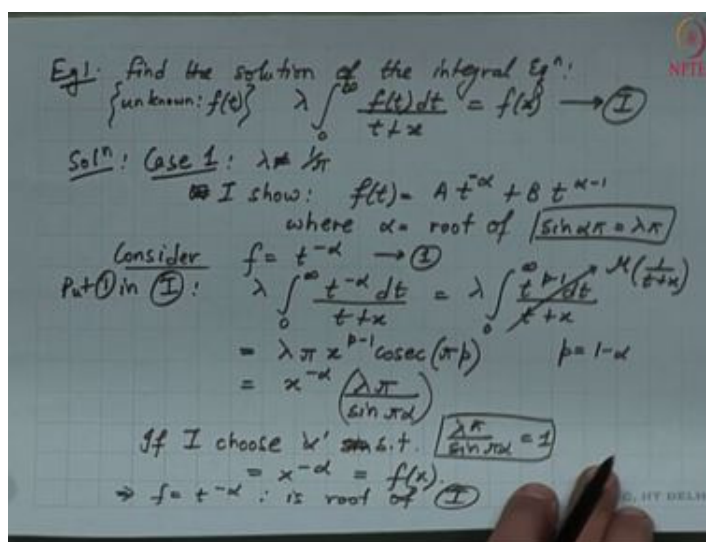 Eg1: find the solution of the integral Eqⁿ:
{unknown: f(t)} λ ∫₀^∞ f(t)dt / t+x = f(x) → Ⓘ
Solⁿ: Case 1: λ ≠ 1/π
I show: f(t) = A t^{-α} + B t^{α-1}
where α = root of sin απ = λπ
Consider f = t^{-α} → ①
Put ① in Ⓘ: λ ∫₀^∞ t^{-α} dt / t+x = λ ∫₀^∞ t^{p-1} dt / t+x M(1/t+x)
= λ π x^{p-1} cosec(πp) p = 1-α
= x^{-α} (λπ / sin πα)
If I choose 'α' s.t. λπ / sin πα = 1
= x^{-α} = f(x).
⇒ f = t^{-α} : is root of Ⓘ
NPTEL
IIT DELH